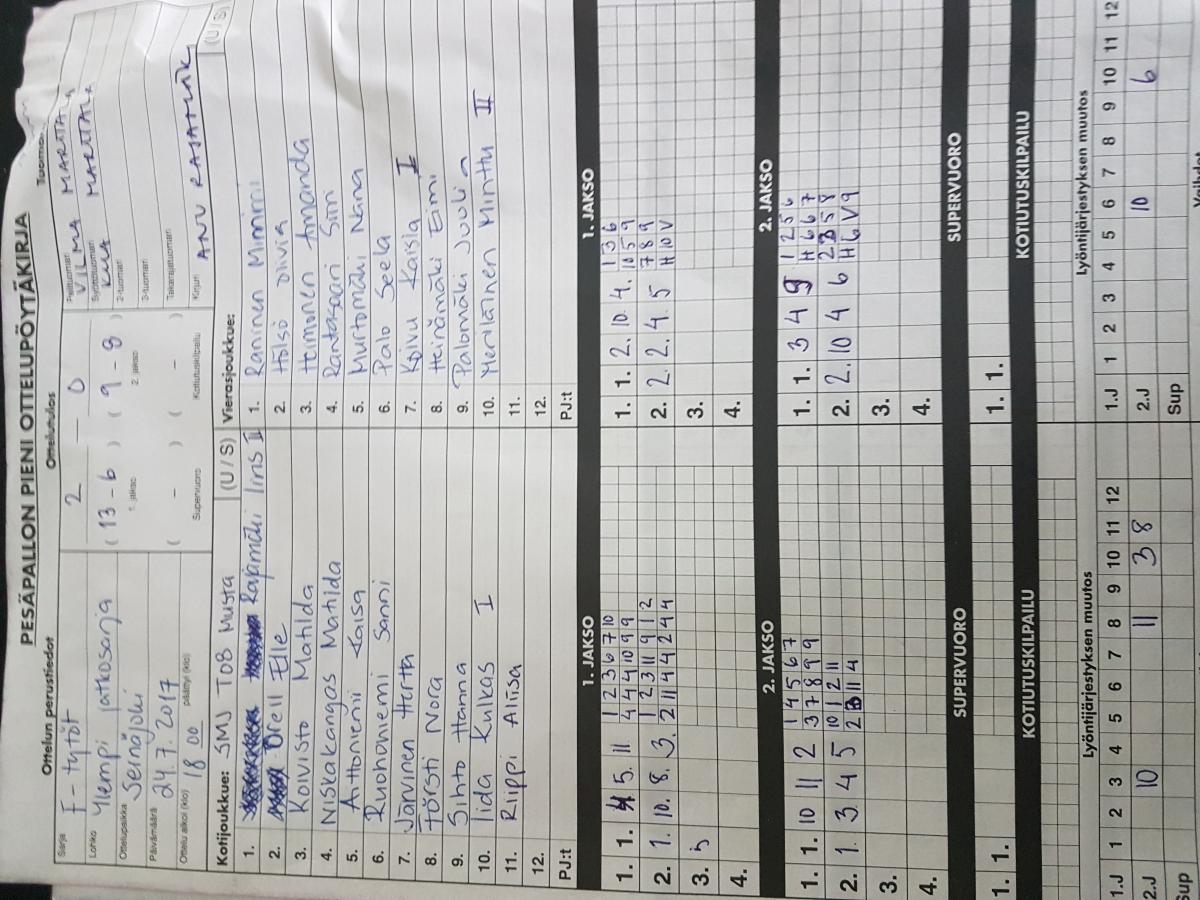 PESÄPALLON PIENI OTTELUPÖYTÄKIRJA
Ottelun perustiedot
Sarja F - tytöt
Lohko Ylempi jatkosarja
Ottelupaikka Seinäjoki
Päivämäärä 24.7.2017
Ottelu alkoi (klo) 18 00 päättyi (klo)
Ottelutulos
2 - 0
( 13 - 6 ) ( 9 - 8 )
1. jakso 2. jakso
( - ) ( - )
Supervuoro Kotiutuskilpailu
Pelituomari VILMA MARTTALA
Syöttötuomari MARTTALA
2-tuomari
3-tuomari
Takarajatuomari
Kirjuri ANU RAJAMÄKI
Kotijoukkue: SMJ T08 Musta (U / S)
1. Rajamäki Iiris II
2. Orell Elle
3. Koivisto Matilda
4. Niskakangas Matilda
5. Aittoniemi Kaisa
6. Ruohoniemi Sanni
7. Järvinen Hertta
8. Törsti Nora
9. Sihto Hanna
10. Iida Kulkas I
11. Riippi Aliisa
12.
PJ:t
Vierasjoukkue: (U / S)
1. Raninen Mimimi
2. Hölsö Olivia
3. Heimonen Amanda
4. Rantasaari Siiri
5. Muitomäki Nana
6. Palo Seela
7. Koivu Kaisla I
8. Heinämäki Eimi
9. Palomäki Juulia
10. Meriläinen Minttu II
11.
12.
PJ:t
1. JAKSO
1. 1. 4 5. 11 1 2 3 6 7 10
4 4 4 10 9 9
2. 1. 10. 8. 3. 1 2 3 11 9 1 2
2 11 4 4 2 4 4
3. 5
4.
1. JAKSO
1. 1. 2. 10. 4. 1 3 6
10 5 9
2. 2. 2. 4. 5 7 8 9
H 10 V
3.
4.
2. JAKSO
1. 1. 10 11 2 1 4 5 6 7
3 7 8 9 9
2. 1. 3 4 5 10 1 2 11
2 3 11 4
3.
4.
2. JAKSO
1. 1. 3 4 9 1 2 5 6
H 6 6 7
2. 2. 10 4 6 2 3 5 8
H 6 V 9
3.
4.
SUPERVUORO
1. 1.
SUPERVUORO
1. 1.
KOTIUTUSKILPAILU
KOTIUTUSKILPAILU
Lyöntijärjestyksen muutos
1.J 1 2 3 4 5 6 7 8 9 10 11 12
2.J 10 11 3 8
Sup
Lyöntijärjestyksen muutos
1.J 1 2 3 4 5 6 7 8 9 10 11 12
2.J 10 6
Sup